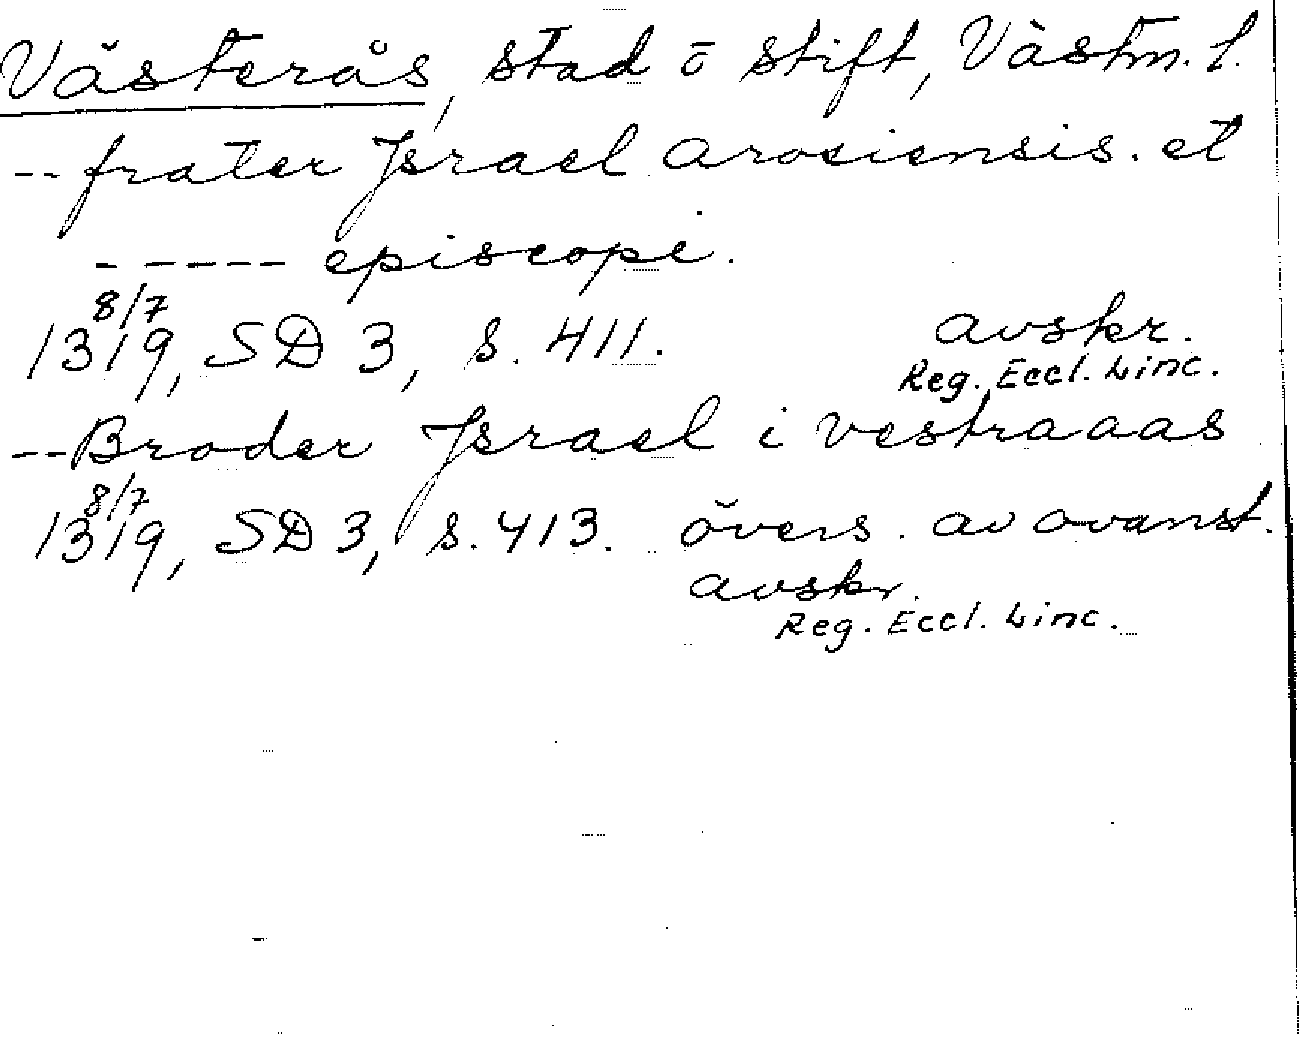 Västerås, stad o stift, Västm. l.
-- frater Jsrael arosiensis. et
- ---- episcopi.
8/7
1319, SD 3, s. 411. avskr.
Reg. Eccl. Linc.
-- Broder Jsrael i vestraaas
8/7
1319, SD 3, s. 413. övers. av ovanst.
avskr.
Reg. Eccl. Linc.